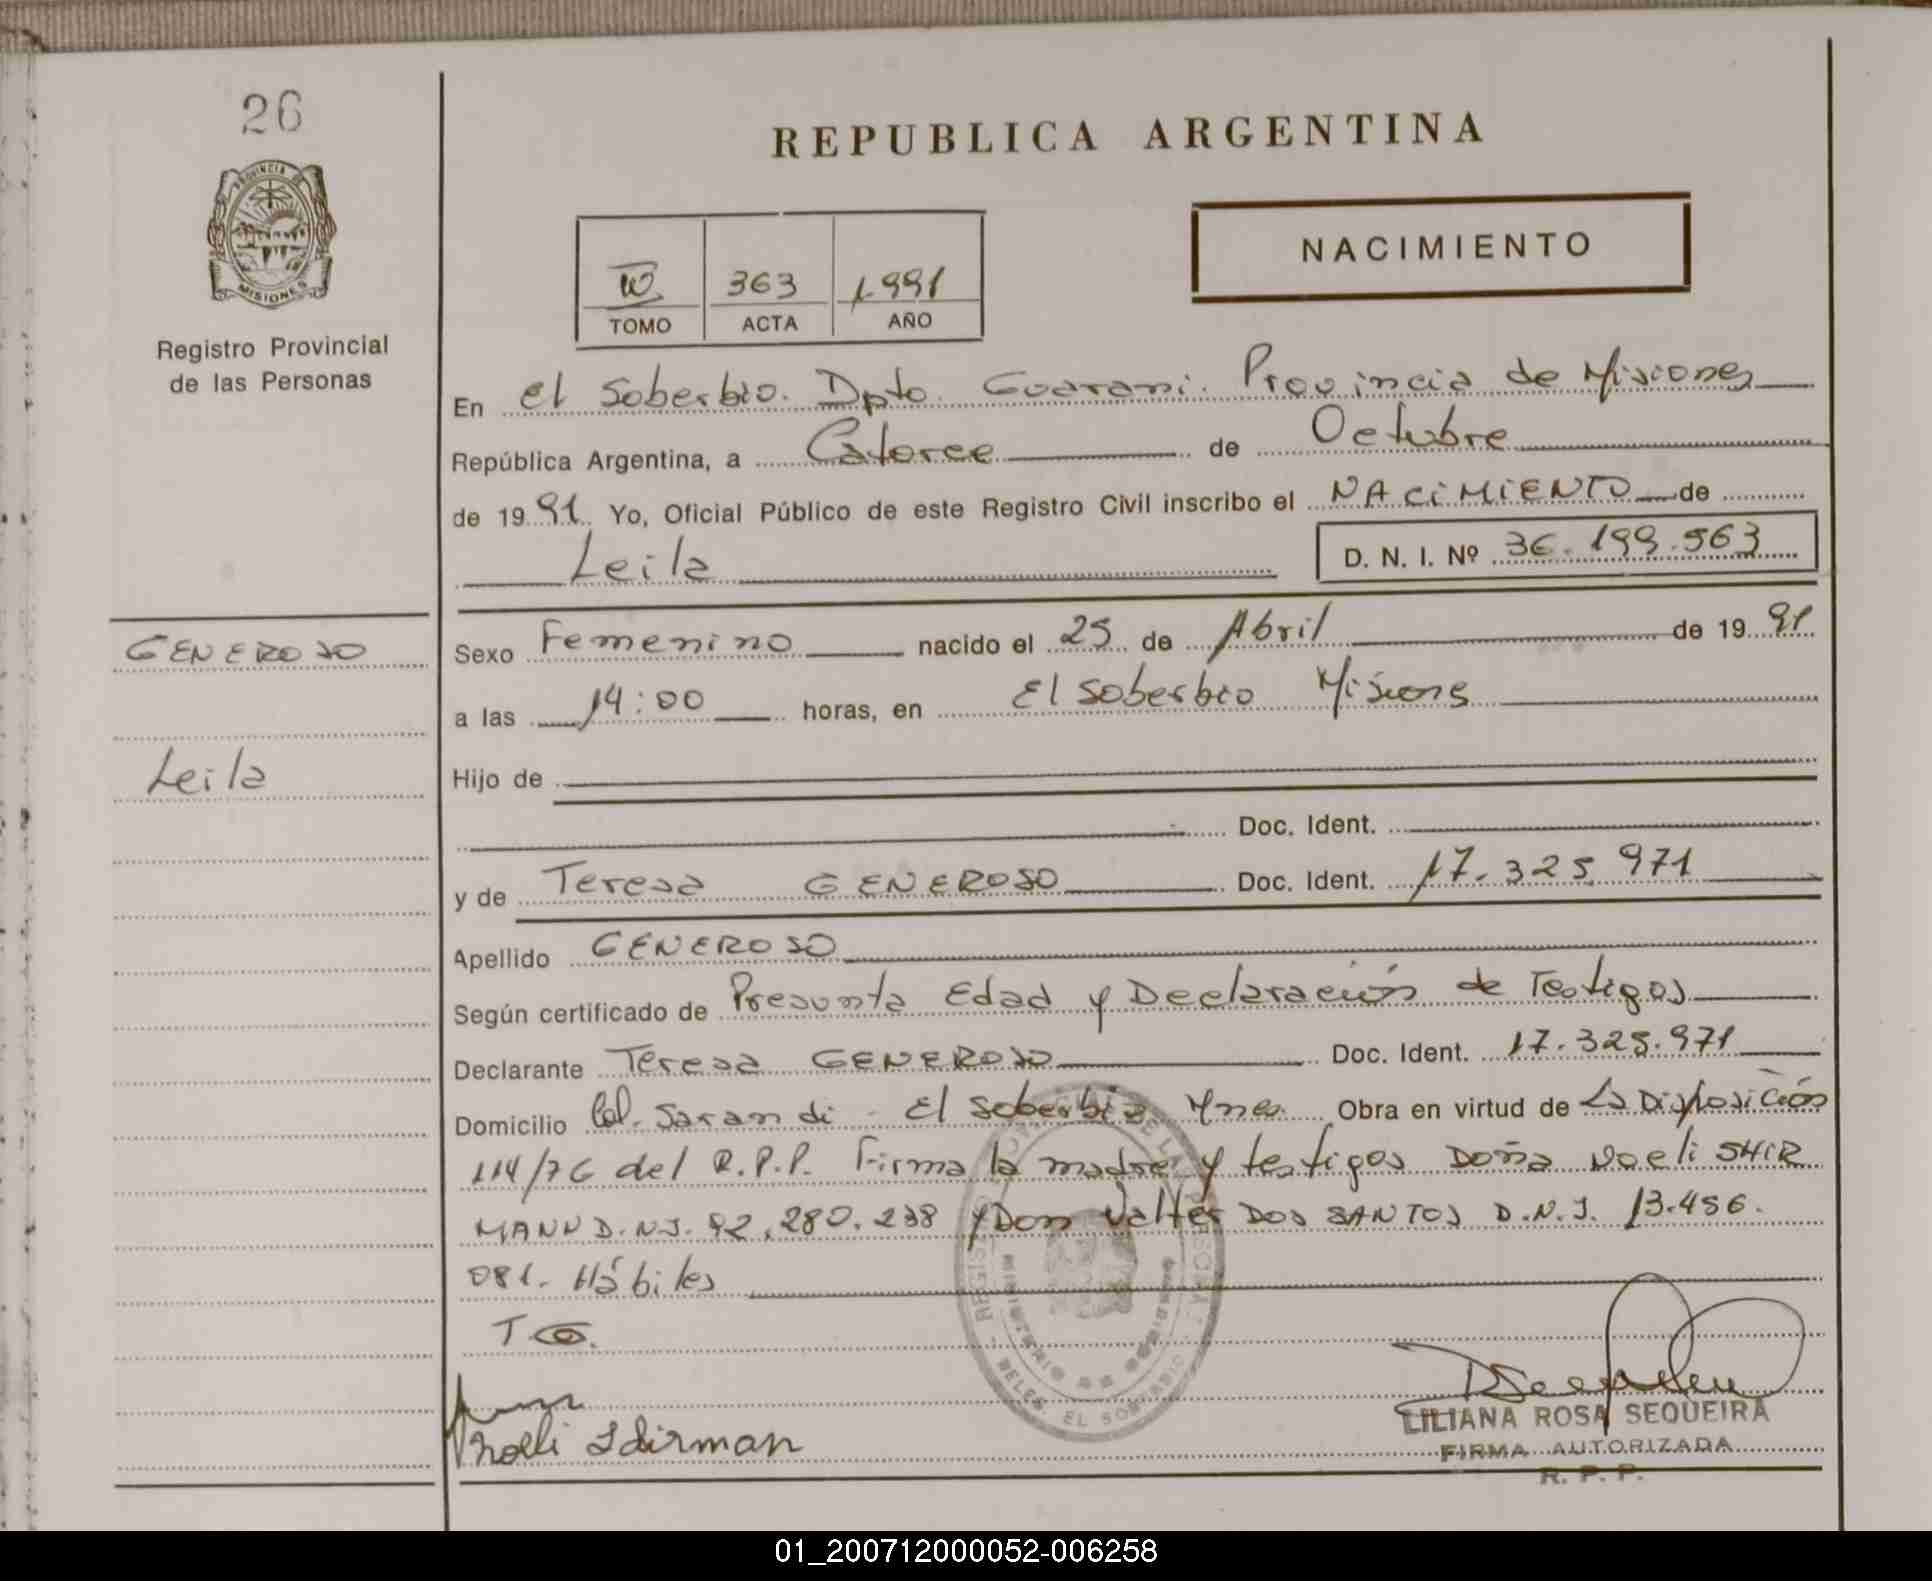 26
PROVINCIA DE
MISIONES
Registro Provincial
de las Personas
GENEROSO
Leila
REPUBLICA ARGENTINA
NACIMIENTO
363 1991
TOMO ACTA AÑO
En El Soberbio. Dpto. Guarani. Provincia de Misiones
República Argentina, a Catorce de Octubre
de 1991 Yo, Oficial Público de este Registro Civil inscribo el NACIMIENTO de
Leila D. N. I. Nº 36.199.563
Sexo Femenino nacido el 25 de Abril de 1991
a las 14:00 horas, en El Soberbio Misiones
Hijo de
Doc. Ident.
y de Teresa GENEROSO Doc. Ident. 17.325.971
Apellido GENEROSO
Según certificado de Presunta Edad y Declaración de Testigos
Declarante Teresa GENEROSO Doc. Ident. 17.325.971
Domicilio Col. Sarandi - El Soberbio Mnes. Obra en virtud de La Disposición
114/76 del R.P.P. Firma la madre y testigos Doña Noeli SHIR
MANN D.N.I. 92.280.238 y Don Valter DOS SANTOS D.N.I. 13.456.
081. Hábiles
Noeli Shirman
LILIANA ROSA SEQUEIRA
FIRMA AUTORIZADA
R. P. P.
01_200712000052-006258